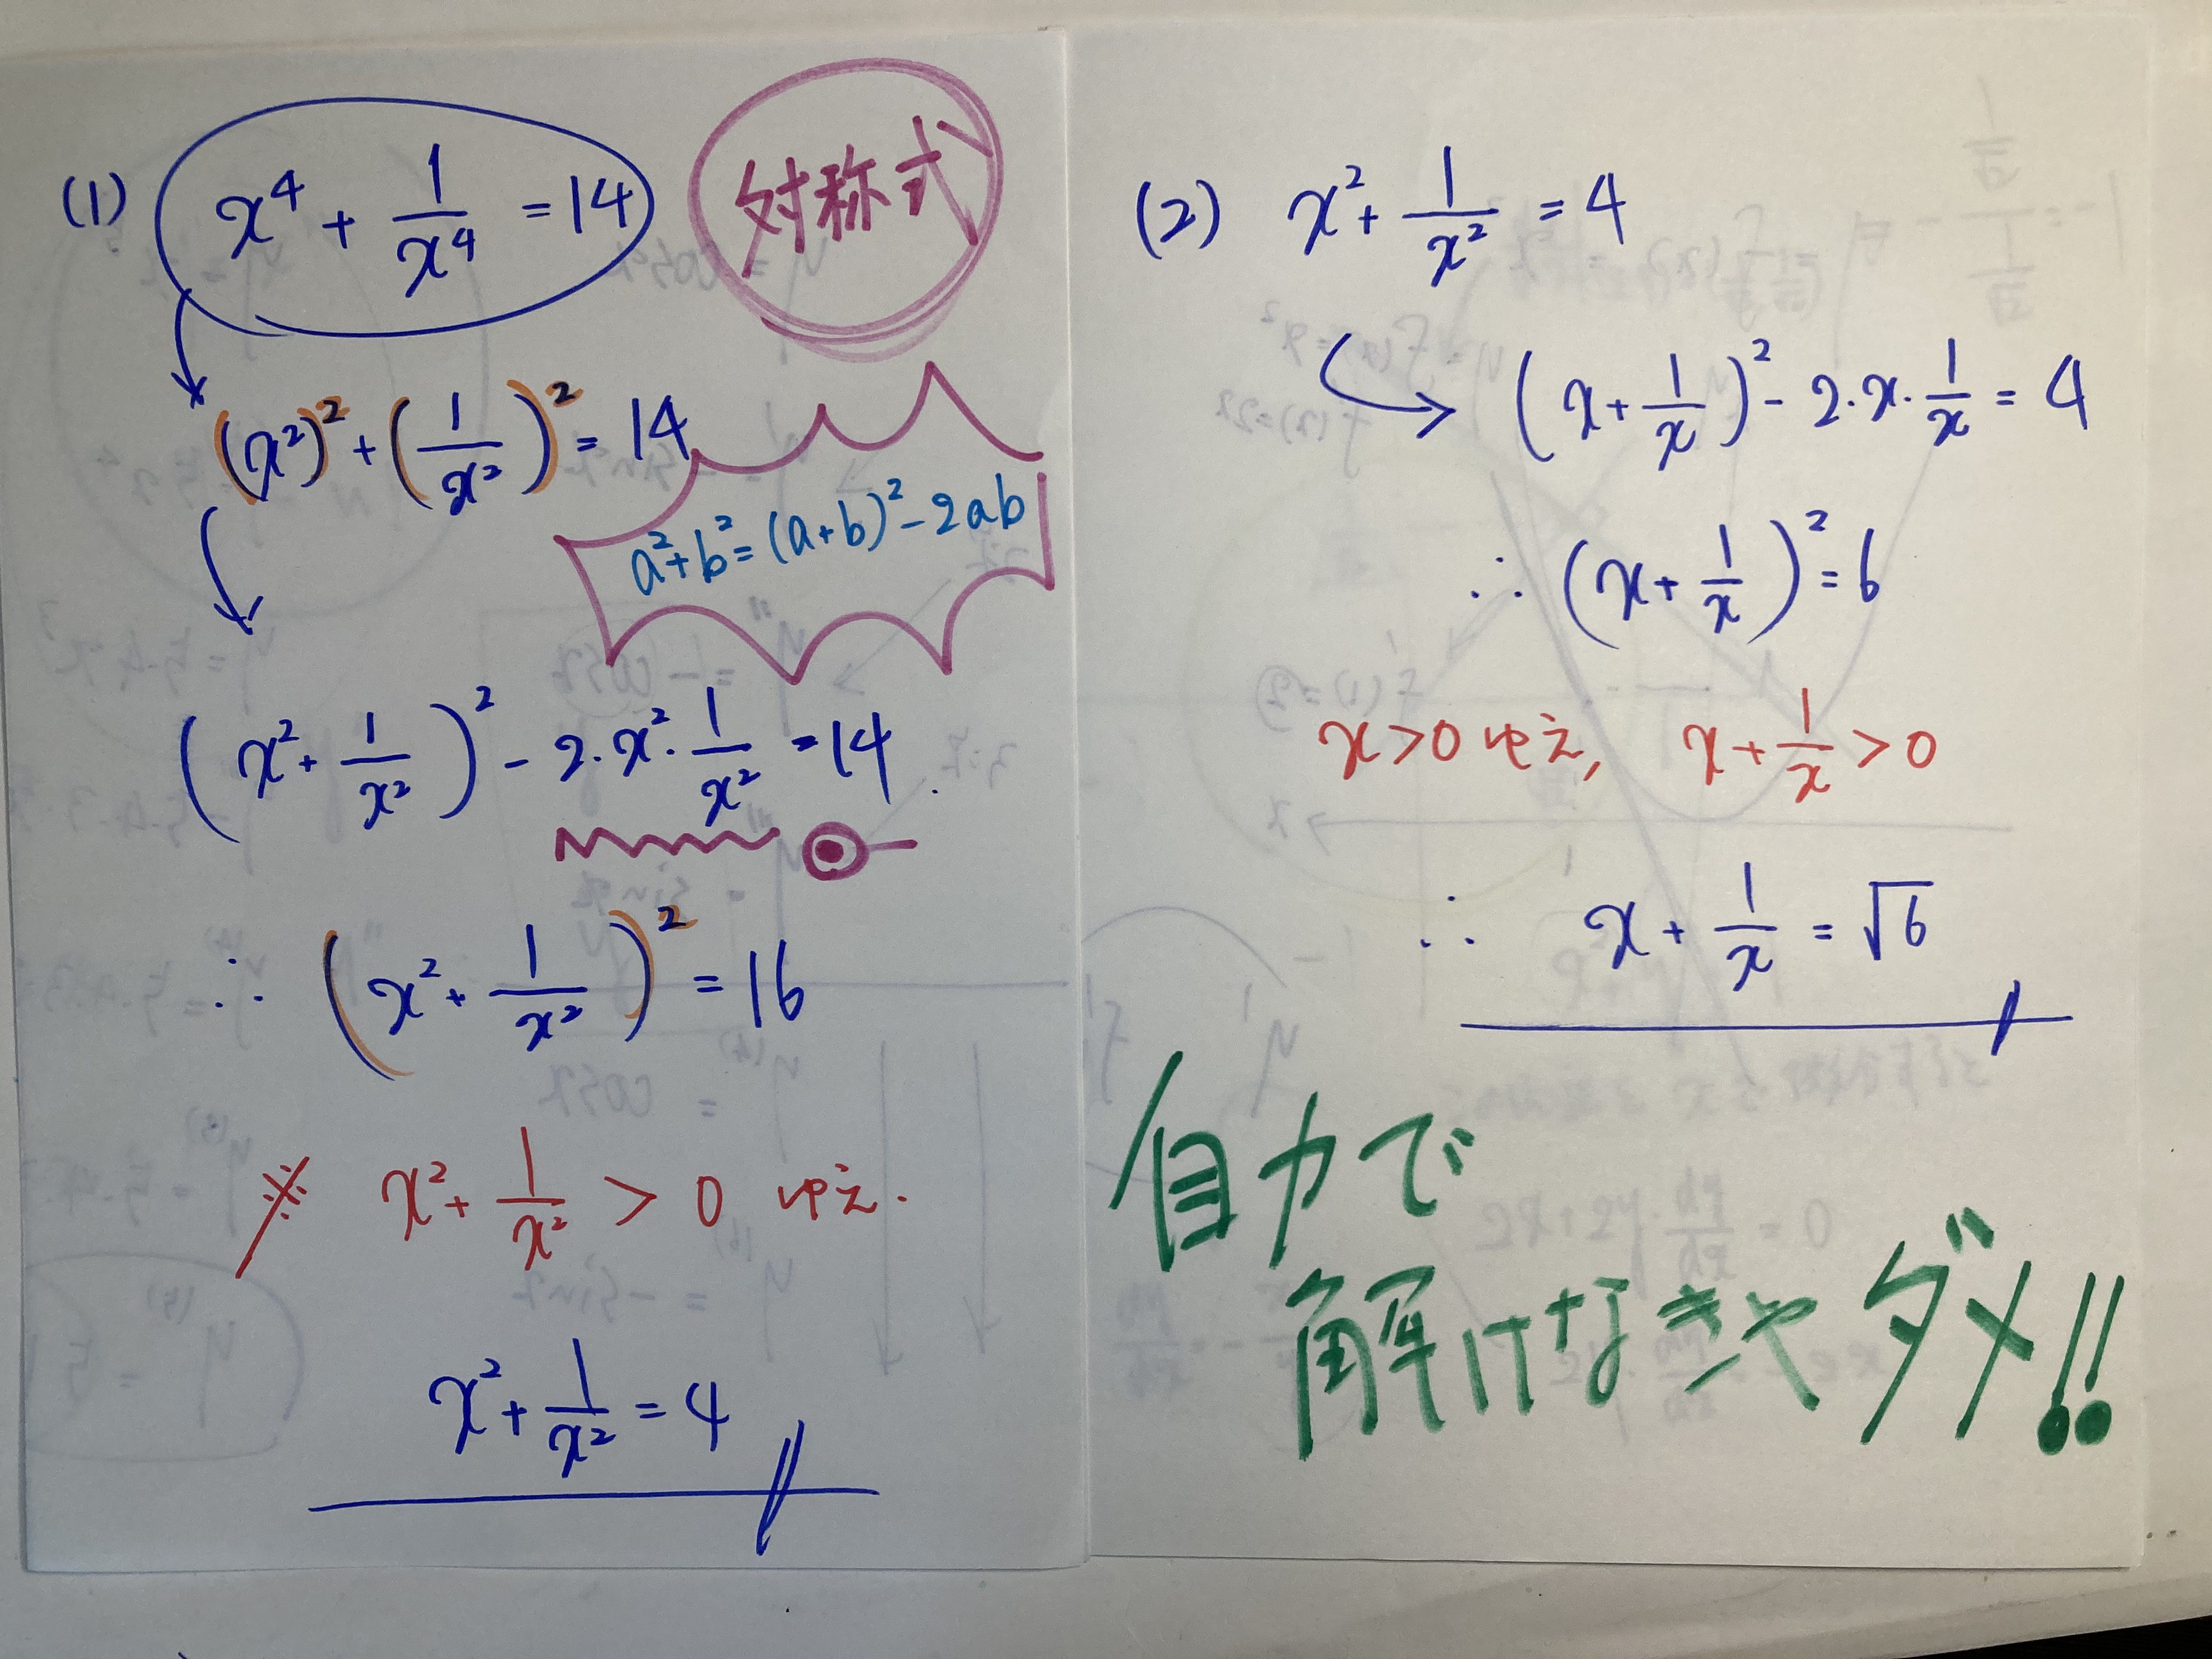 (1) x⁴ + 1/x⁴ = 14
対称式
(x²)² + (1/x²)² = 14
a²+b² = (a+b)² - 2ab
(x² + 1/x²)² - 2·x²·1/x² = 14.
∴ (x² + 1/x²)² = 16
※ x² + 1/x² > 0 ゆえ.
x² + 1/x² = 4
(2) x² + 1/x² = 4
(x + 1/x)² - 2·x·1/x = 4
∴ (x + 1/x)² = 6
x > 0 ゆえ, x + 1/x > 0
∴ x + 1/x = √6
自力で
解けなきゃダメ!!